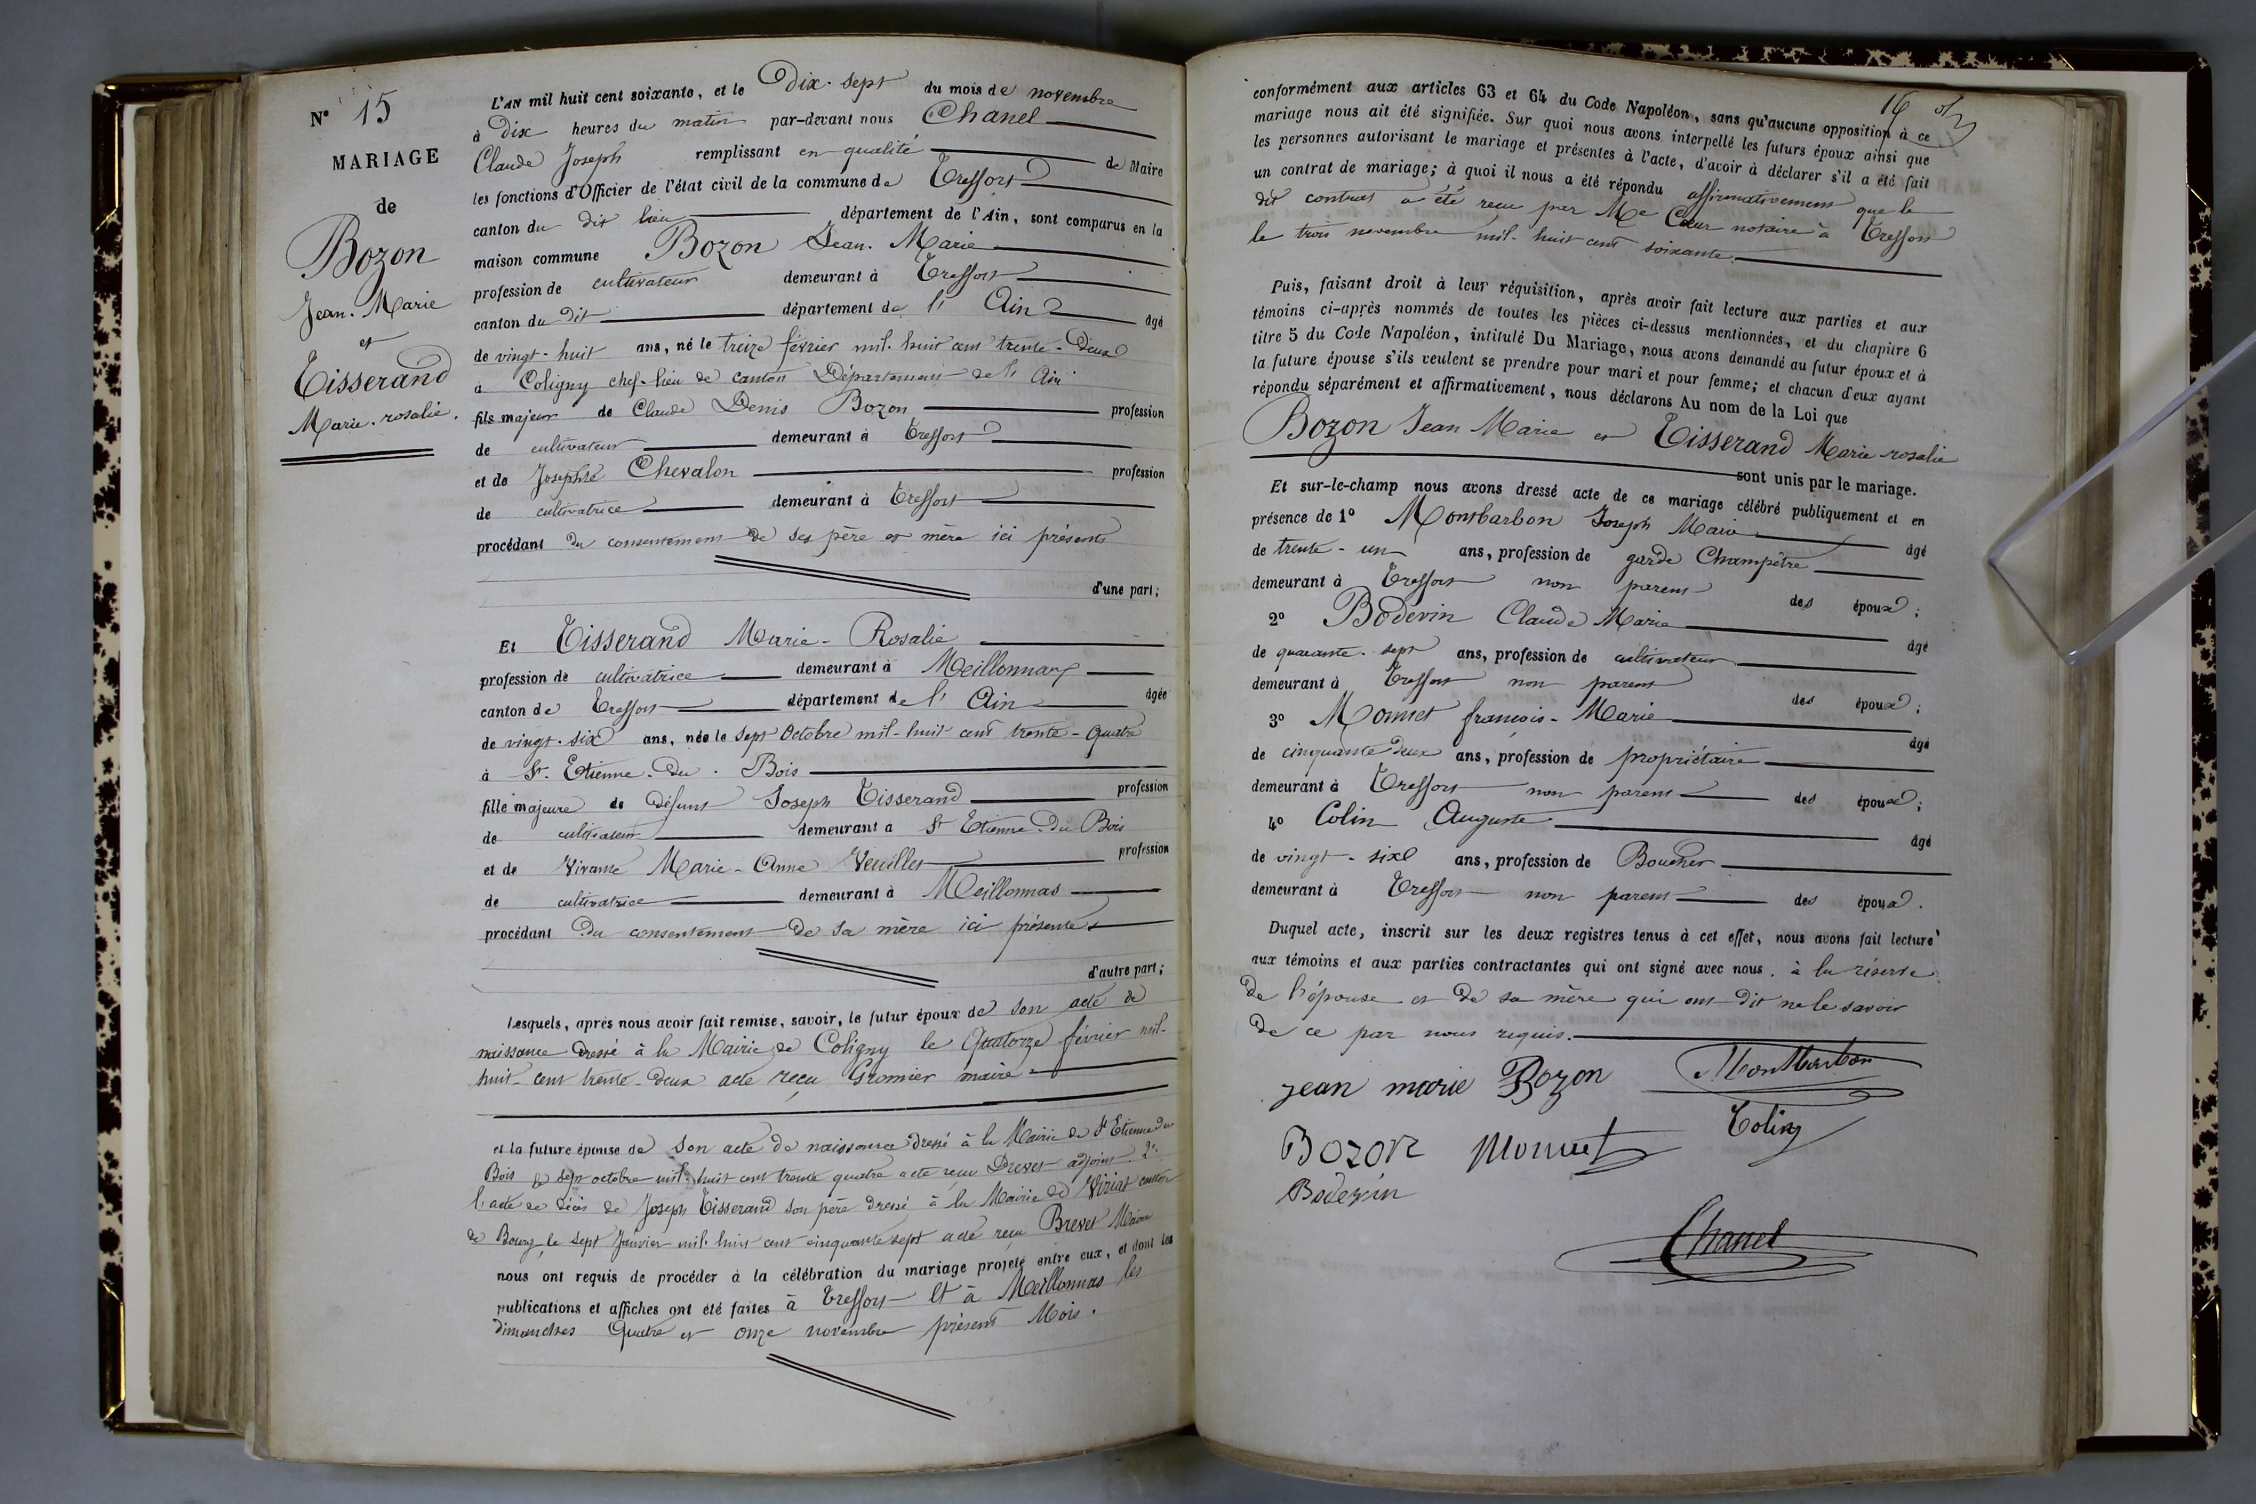 N° 15
MARIAGE
de
Bozon
Jean-Marie
et
Tisserand
Marie-rosalie.
L'AN mil huit cent soixante, et le Dix-sept du mois de novembre
à Dix heures du matin par-devant nous Chanel
Claude Joseph remplissant en qualité de Maire
les fonctions d'Officier de l'état civil de la commune de Treffort
canton du dit lieu département de l'Ain, sont comparus en la
maison commune Bozon Jean-Marie
profession de cultivateur demeurant à Treffort
canton du dit département de l'Ain âgé
de vingt-huit ans, né le treize février mil-huit cent trente-deux
a Coligny chef-lieu de canton Département de l'Ain
fils majeur de Claude Denis Bozon profession
de cultivateur demeurant à Treffort
et de Josephte Chevalon profession
de cultivatrice demeurant à Treffort
procédant du consentement de ses père et mère ici présents
d'une part;
Et Tisserand Marie-Rosalie
profession de cultivatrice demeurant à Meillonnay
canton de Treffort département de l'Ain âgée
de vingt-six ans, née le sept Octobre mil-huit cent trente-quatre
à St. Etienne-du-Bois
fille majeure de défunt Joseph Tisserand profession
de cultivateur demeurant a St Etienne-du Bois
et de vivante Marie-Anne Veuillet profession
de cultivatrice demeurant à Meillonnas
procédant du consentement de sa mère ici présente
d'autre part;
Lesquels, après nous avoir fait remise, savoir, le futur époux de son acte de
naissance dressé à la Mairie de Coligny le Quatorze février mil-
huit-cent trente-deux acte reçu Gromier maire
et la future épouse de son acte de naissance dressé à la Mairie de St Etienne du
Bois le sept octobre mil-huit cent trente quatre acte reçu adjoint 2°.
l'acte de décès de Joseph Tisserand son père dressé à la Mairie de Viriat canton
de Bourg le sept Janvier mil-huit cent cinquante sept acte reçu Brevet Maire
nous ont requis de procéder à la célébration du mariage projeté entre eux, et dont les
publications et affiches ont été faites à Treffort et à Meillonnas les
dimanches Quatre et onze novembre présent Mois.
16
conformément aux articles 63 et 64 du Code Napoléon, sans qu'aucune opposition à ce
mariage nous ait été signifiée. Sur quoi nous avons interpellé les futurs époux ainsi que
les personnes autorisant le mariage et présentes à l'acte, d'avoir à déclarer s'il a été fait
un contrat de mariage; à quoi il nous a été répondu affirmativement que le
dit contrat a été reçu par Me Cœur notaire à Treffort
le trois novembre mil-huit cent soixante.
Puis, faisant droit à leur réquisition, après avoir fait lecture aux parties et aux
témoins ci-après nommés de toutes les pièces ci-dessus mentionnées, et du chapitre 6
titre 5 du Code Napoléon, intitulé Du Mariage, nous avons demandé au futur époux et à
la future épouse s'ils veulent se prendre pour mari et pour femme; et chacun d'eux ayant
répondu séparément et affirmativement, nous déclarons Au nom de la Loi que
Bozon Jean Marie et Tisserand Marie-rosalie
sont unis par le mariage.
Et sur-le-champ nous avons dressé acte de ce mariage célébré publiquement et en
présence de 1° Montbarbon Joseph Marie âgé
de trente-un ans, profession de garde Champêtre
demeurant à Treffort non parent des époux;
2° Bodevin Claude Marie âgé
de quarante-sept ans, profession de cultivateur
demeurant à Treffort non parent des époux;
3° Monnet françois-Marie âgé
de cinquante deux ans, profession de propriétaire
demeurant à Treffort non parent des époux;
4° Colin Auguste âgé
de vingt-six ans, profession de Boucher
demeurant à Treffort non parent des époux.
Duquel acte, inscrit sur les deux registres tenus à cet effet, nous avons fait lecture
aux témoins et aux parties contractantes qui ont signé avec nous. à la réserve
de l'épouse et de sa mère qui ont dit ne le savoir
de ce par nous requis.
jean marie Bozon Montbarbon
Colin
Bozon Monnet
Bodevin
Chanel